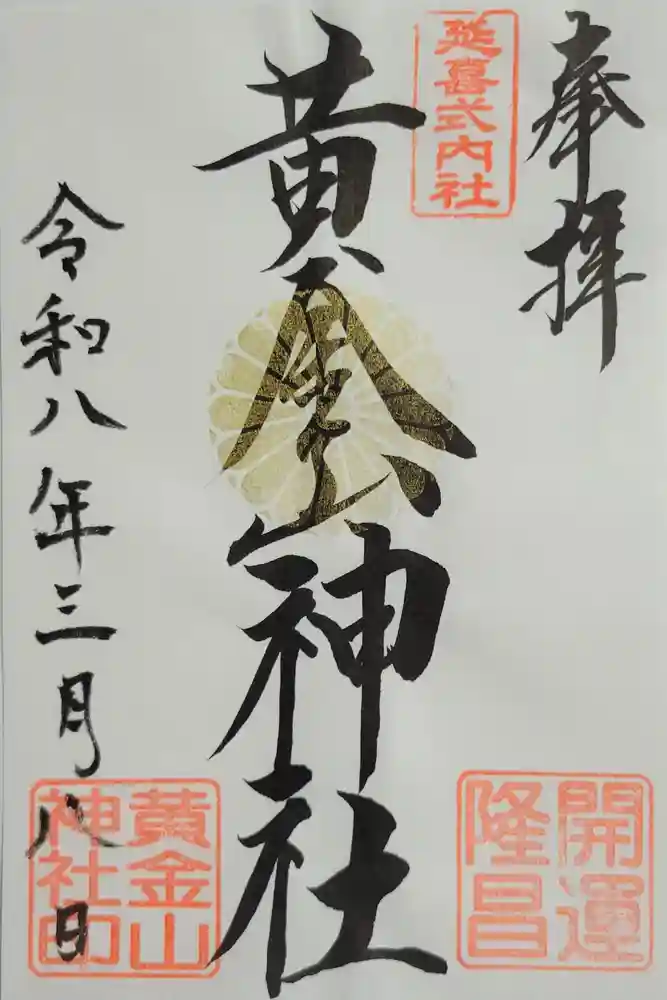 奉拝
延喜式内社
黄金山神社
令和八年三月八日
開運
隆昌
黄金山
神社印